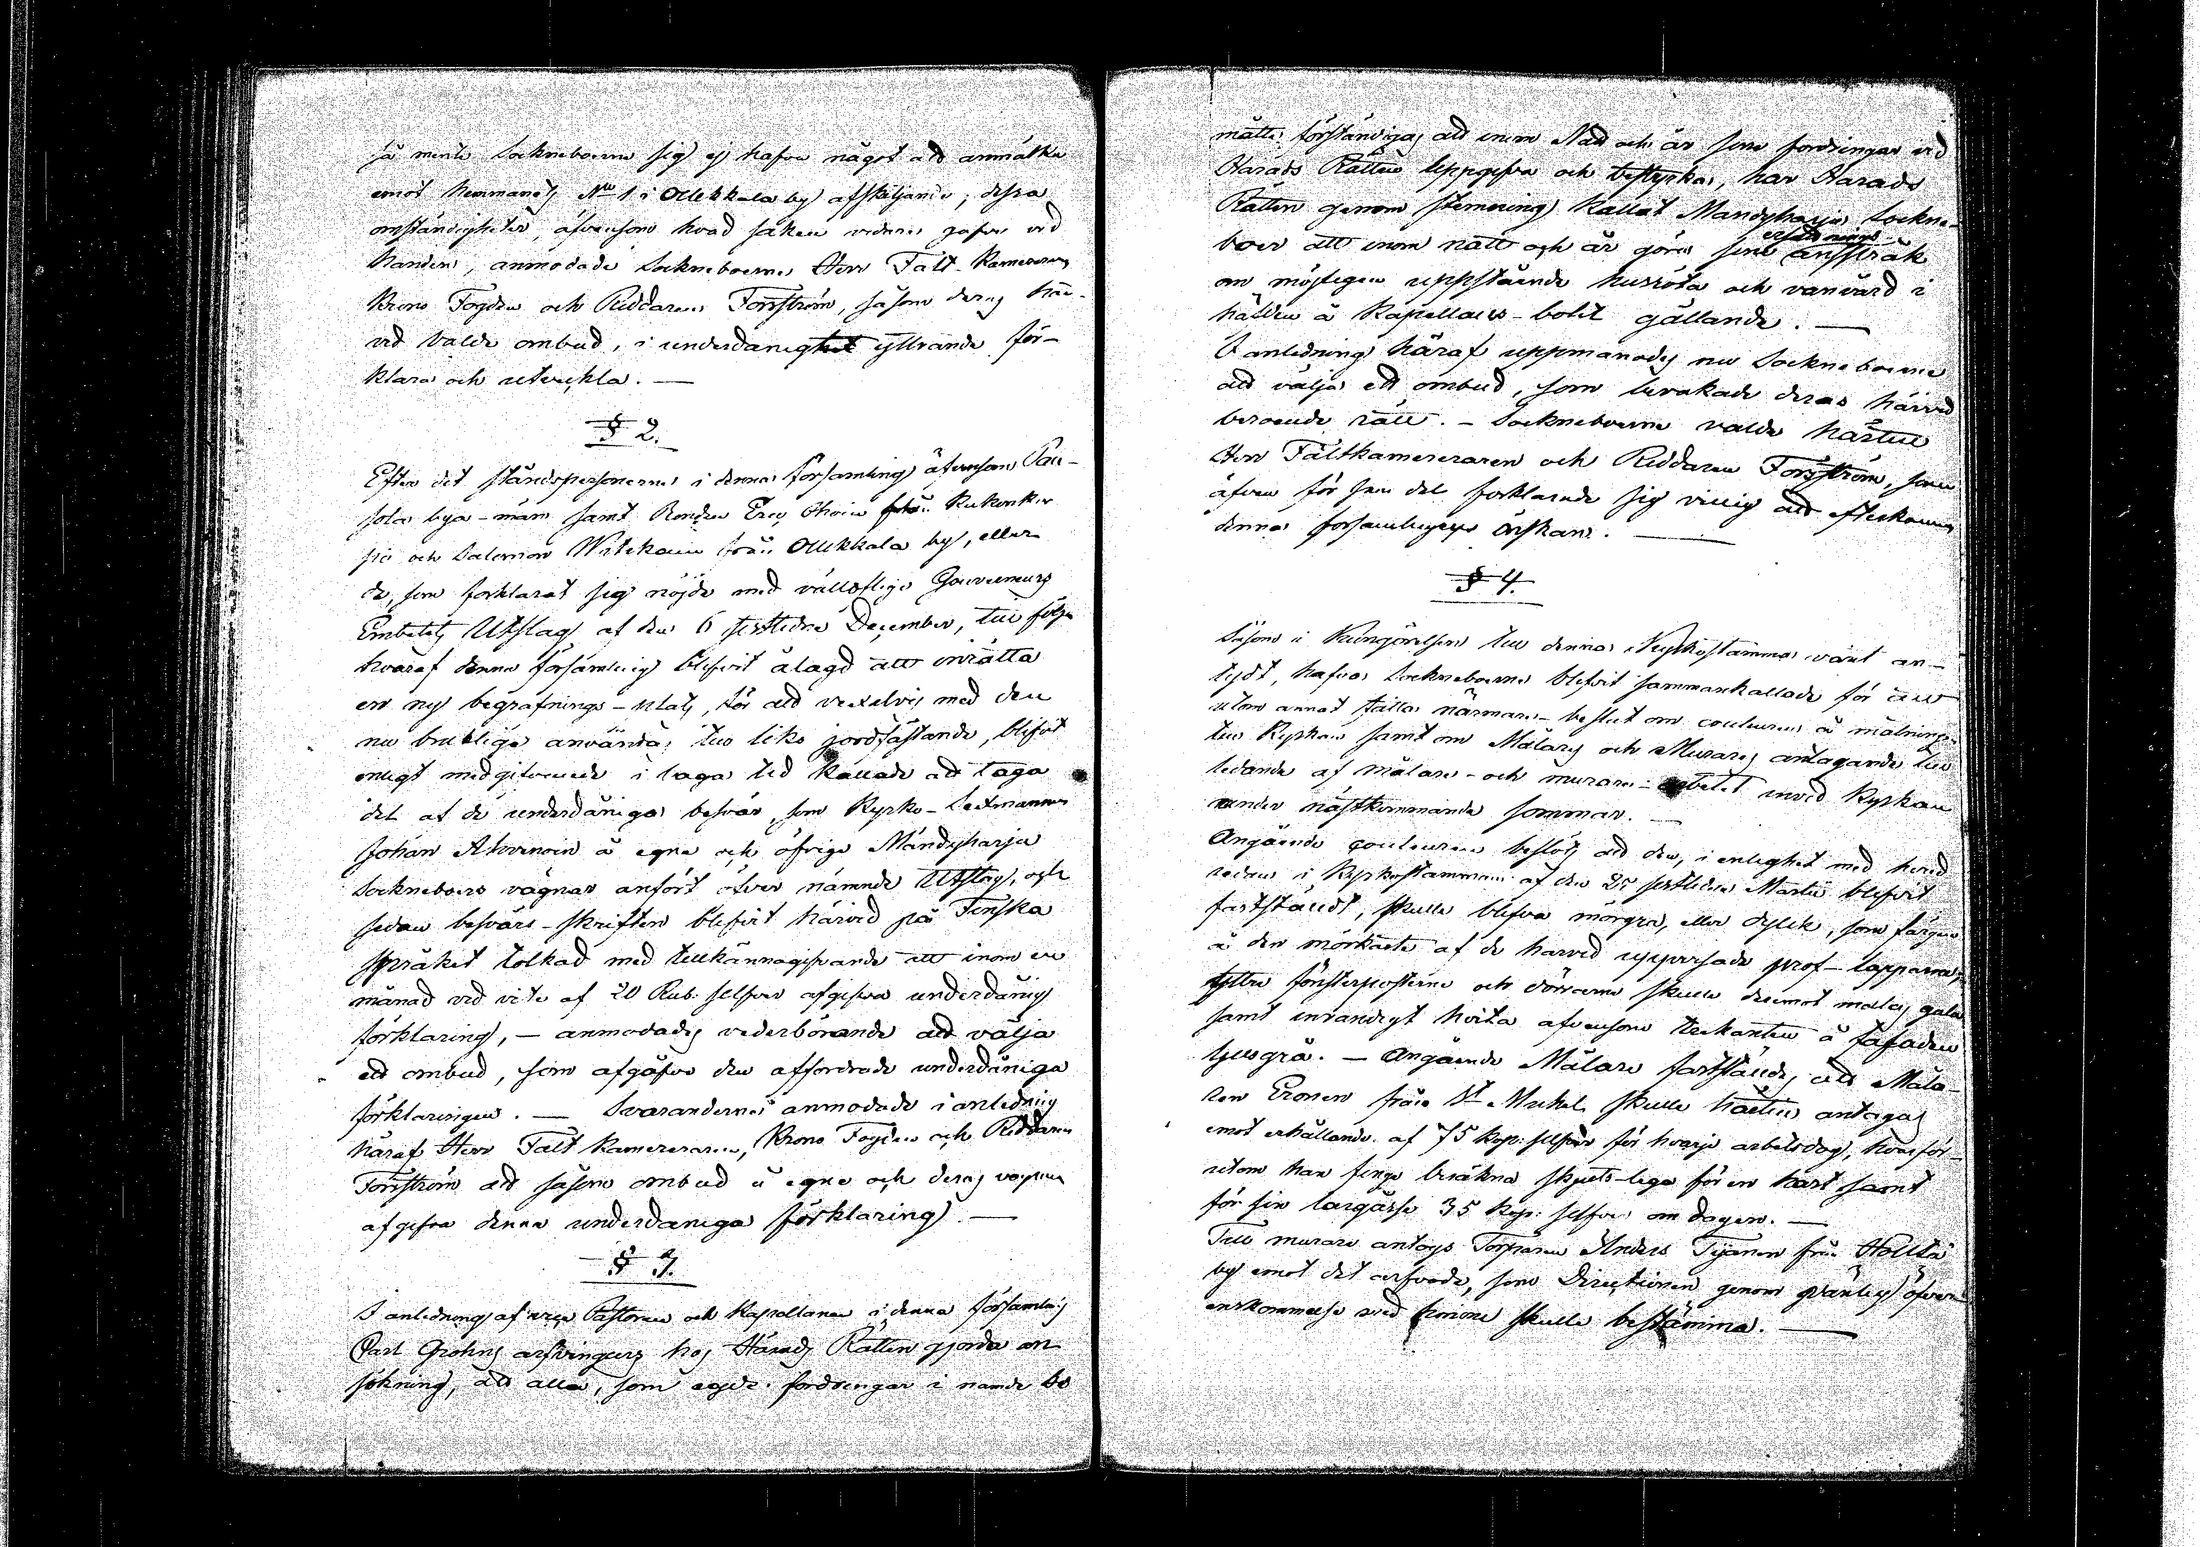 så mente Sockneboerne sig ej hafva något att anmärka
emot hemmanets No 1 i Ollikkala by afskiljande; dessa
omständigheter, äfvensom hvad saken vidare gafve vid
handen, anmodade Sockneboerne Herr Fält-Kamereraren
Krono Fogden och Riddaren Forsström, såsom deras här-
vid valde ombud, i underdånighet yttrande för-
klara och utveckla. —
§ 2.
Efter det ståndspersonerne i denna församling äfvensom Pau-
sola bya-män samt Bonden Eric från Kukonkor
sia och Salomon Witikain från Ollikkala by, eller
de, som förklarat sig nöjde med vällofliga Gouverneurs
Embetets Utslag af den 6 sistledne December, till följe
hvaraf denna församling blifvit ålagd att inrätta
en ny begrafnings-plats, för att vexelvis med den
nu brukliga användas till liks jordfästande, blifvit
enligt medgifvande i laga tid kallade att taga
del af de underdåniga besvär, som Kyrko-Sexmannen
Johan Ahvenain å egne och öfrige Mändyharju
Sockneboers vägnar anfört öfver nämnde Utslag, och
sedan besvärs-skriften blifvit härvid på Finska
språket tolkad med tillkännagifvande att inom en
månad vid vite af 20 Rub: silfver afgifva underdånig
förklaring, — anmodades vederbörande att välja
ett ombud, som afgåfve den affordrade underdåniga
förklaringen. — Svaranderne anmodade i anledning
häraf Herr Fält Kamereraren, Krono Fogden och Riddaren
Forsström att såsom ombud å egne och deras vägnar
afgifva denna underdåniga förklaring. —
§ 3.
I anledning af Pastoren och Kapellanen i denna församling
Carl Grohns arfvingars hos Härads Rätten gjorda an-
sökning, att alla, som ägde fordringar i nämde bo
måtte förständigas att inom Natt och år sine fordringar vid
Härads Rätten uppgifva och bestyrka, har Härads
Rätten genom stemning kallat Mändyharju Sockne-
boer att inom natt och år göra sine ersättnings anspråk
om möjligen uppstående husröta och vanvård i
hälden å Kapellans-bolet gällande. —
I anledning häraf uppmanades nu Sockneboerne
att välja ett ombud, som bevakade deras härvid
beroende rätt. — Sockneboerne valde härtill
Herr Fältkamereraren och Riddaren Forsström, som
äfven för sin del förklarade sig villig att efterkomma
denna församlingens önskan. —
§ 4.
Såsom i Kungörelsen till denna Kyrkostämma varit an-
tydt, hafva Sockneboerne blifvit sammankallade för att
utom annat fatta närmare beslut om couleuren å målningen
till Kyrkan samt om Målares och Murares antagande till
ledande af målare- och murare-arbetet invid Kyrkan
under nästkommande sommar. —
Angående couleuren beslöts att den, i enlighet med hvad
redan i Kyrkostämman af den 25 sistledne Martii blifvit
fastståndt, skulle blifva mörgrå, eller dylik, som färgen
å den mörkaste af de härvid uppvisade prof-lapparna,
yttre fönsterposterne och dörrarne skulle deremot målas gula
samt invändigt hvita äfvensom Listkanten å fasaden
ljusgrå. — Angående Målare fastställdes, att Måla-
ren Eronen från St Michel skulle härtill antagas
emot erhållande af 75 Kop: silfver för hvarje arbetsdag, hvarför-
utom han finge beräkna skjuts-lega för en häst samt
för sin lärgåsse 35 Kop: silfver om dagen. —
Till murare antogs Torparen Anders Tyanen från Hollta
by emot det arfvode, som Directionen genom gränlig öfver-
enskommelse med honom skulle bestämma. —